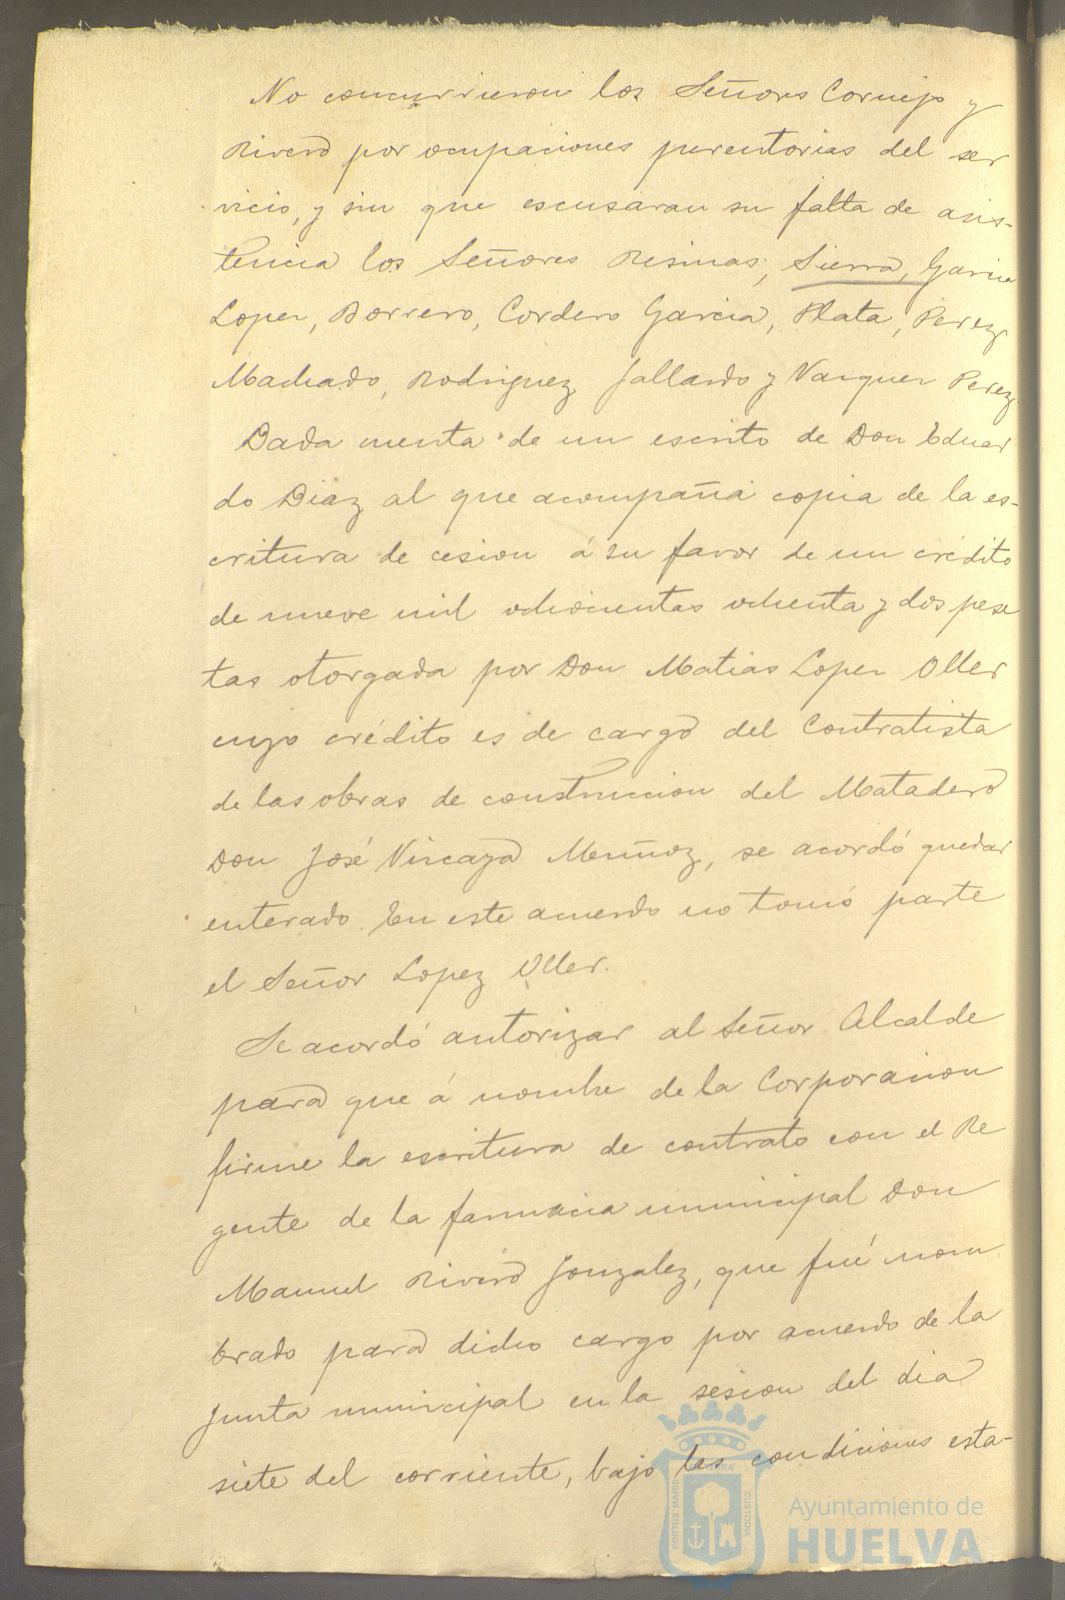 No concurrieron los Señores Cornejo y
Rivero por ocupaciones perentorias del ser
vicio, y sin que escusaran su falta de asis-
tencia los Señores Resinas, Sierra, Garcia
Lopez, Borrero, Cordero Garcia, Plata, Perez
Machado, Rodriguez Gallardo y Vazquez Perez.
Dada cuenta de un escrito de Don Eduar
do Diaz al que acompaña copia de la es-
critura de cesion á su favor de un crédito
de nueve mil ochocientas ochenta y dos pese
tas otorgada por Don Matias Lopez Oller
cuyo crédito es de cargo del Contratista
de las obras de construccion del Matadero
Don José Vizcaya Muñoz, se acordó quedar
enterado. En este acuerdo no tomó parte
el Señor Lopez Oller.
Se acordó autorizar al Señor Alcalde
para que á nombre de la Corporacion
firme la escritura de contrato con el Re
gente de la farmacia municipal Don
Manuel Rivero Gonzalez, que fué nom
brado para dicho cargo por acuerdo de la
Junta municipal en la sesion del dia
siete del corriente, bajo las condiciones esta-
PORTUS MARIS
CUSTODIA
Ayuntamiento de
HUELVA